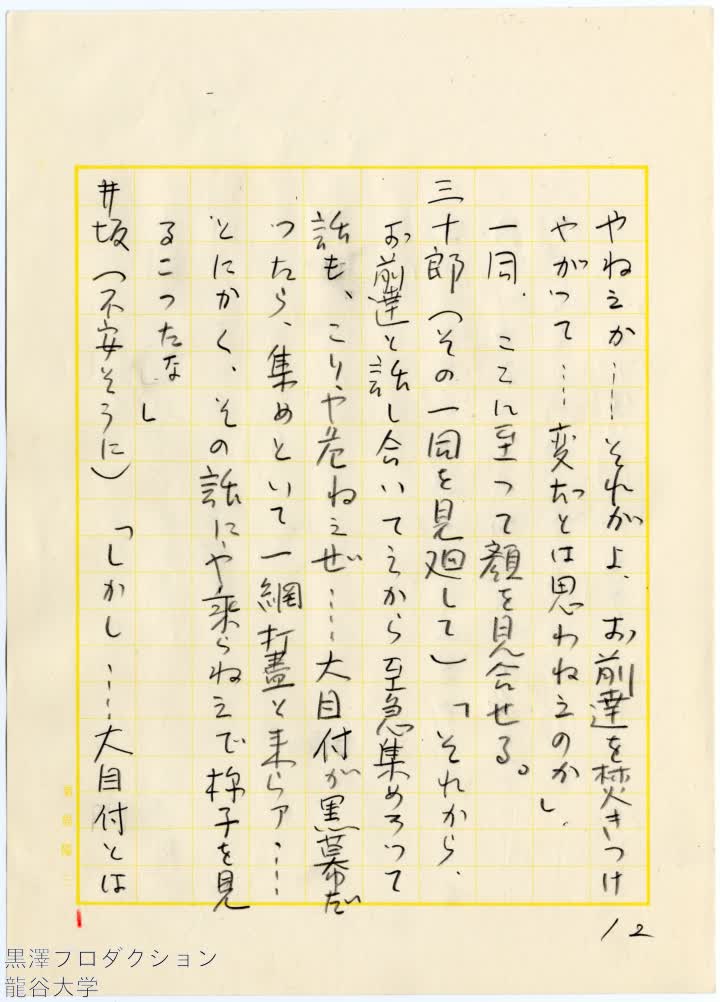 やねえか……それがよ、お前達を焚きつけ
やがって……変だとは思わねえのか」
一同、ここに至って顔を見合せる。
三十郎（その一同を見廻して）「それから、
お前達と話し合いてえから至急集めろって
話も、こりゃ危ねえぜ……大目付が黒幕だ
ったら、集めといて一網打盡と来らァ……
とにかく、その話にゃ乗らねえで様子を見
るこったな」
井坂（不安そうに）「しかし……大目付とは
12
黒澤プロダクション
龍谷大学